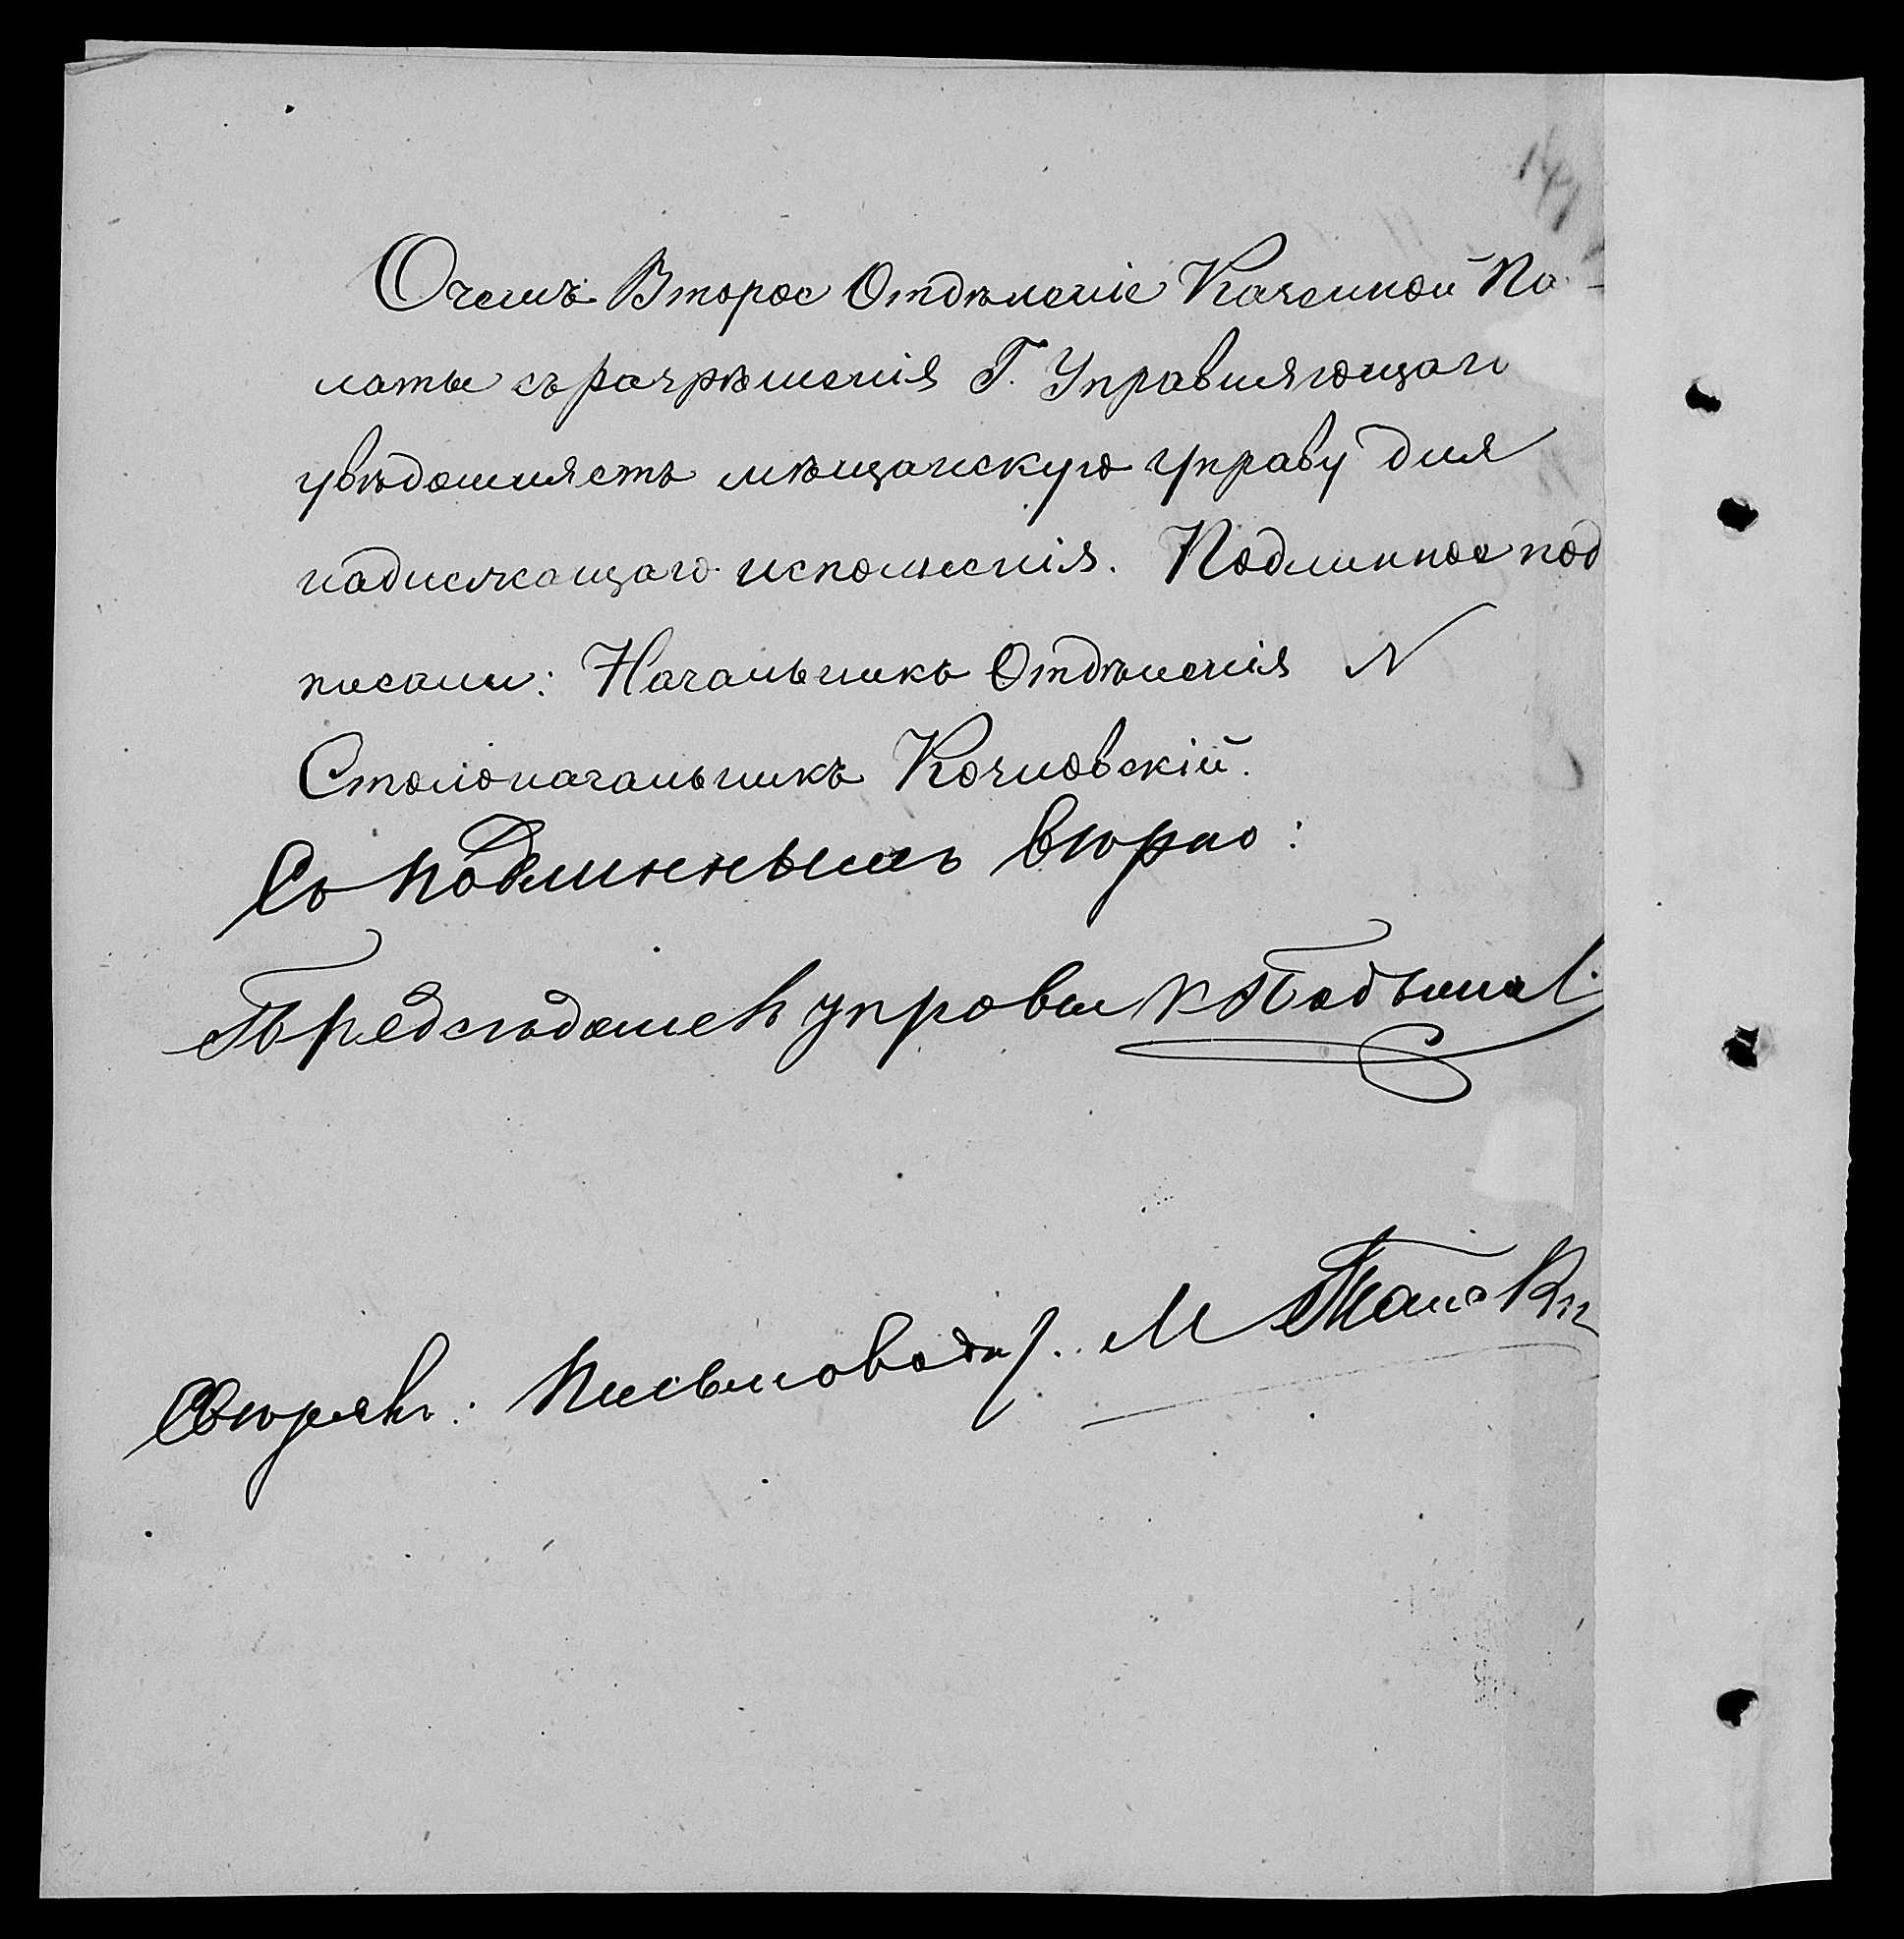 О чемъ Второе Отдѣленіе Казенной Па-
латы съ разрѣшенія Г. Управляющаго
увѣдомляетъ мѣщанскую управу для
надлежащаго исполненія. Подлинное под
писали: Начальникъ Отдѣленія N
Столоначальникъ Козловскій.
Съ подлиннымъ вѣрно:
Предсѣдатель управы
Свѣрялъ: Письмоводи/. М